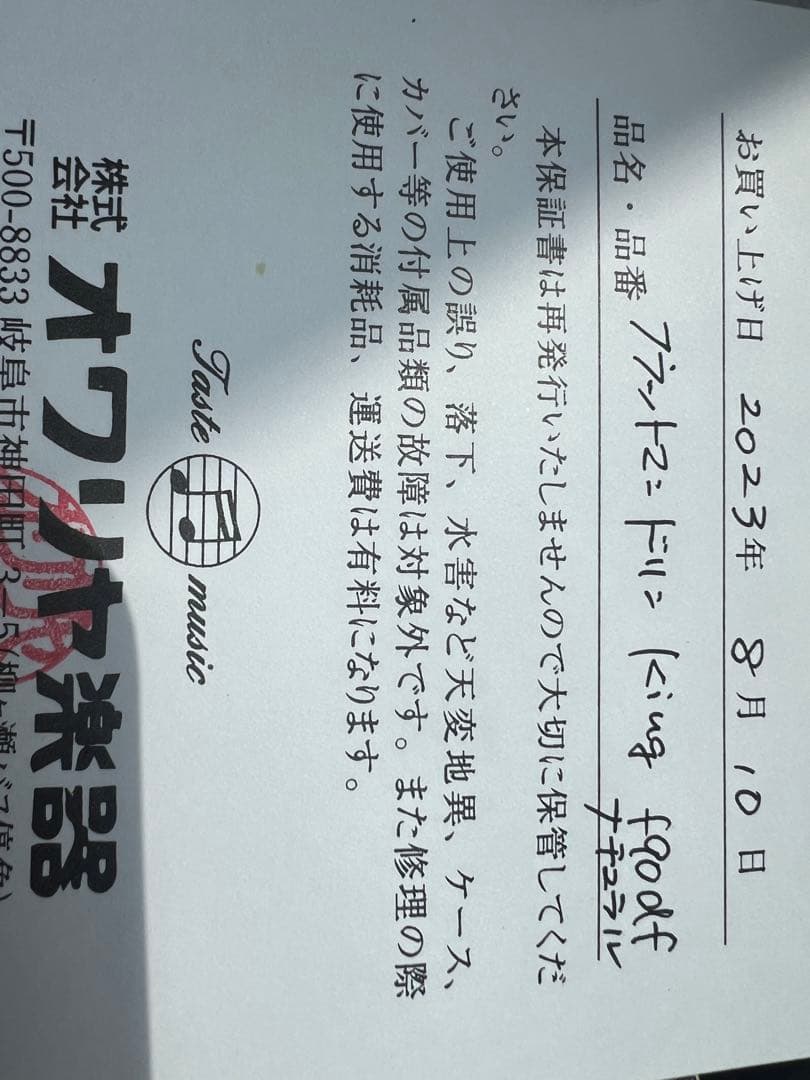 お買い上げ日 2023年 8月 10日
品名・品番 フラットマンドリン King f90df
ナチュラル
本保証書は再発行いたしませんので大切に保管してくだ
さい。
ご使用上の誤り、落下、水害など天変地異、ケース、
カバー等の付属品類の故障は対象外です。また修理の際
に使用する消耗品、運送費は有料になります。
Taste music
株式会社 オワリヤ楽器
〒500-8833 岐阜市神田町3-5(柳ヶ瀬バス停角)